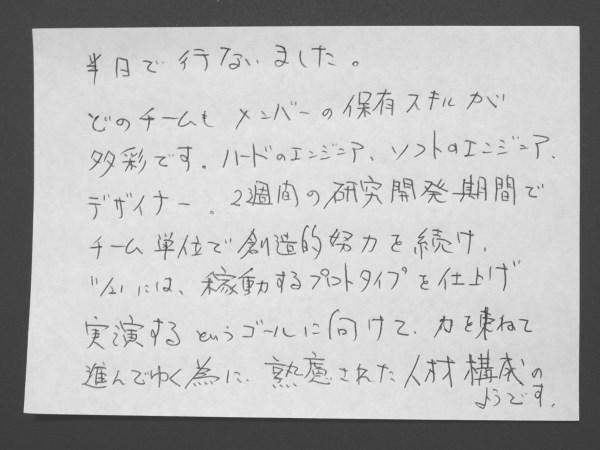 半日で行ないました。
どのチームも メンバーの保有スキルが
多彩です。ハードのエンジニア、ソフトのエンジニア、
デザイナー。2週間の研究開発期間で
チーム単位で創造的努力を続け、
11/21には、稼動するプロトタイプを仕上げ
実演するというゴールに向けて、力を束ねて
進んでゆく為に、熟慮された人材構成の
ようです。